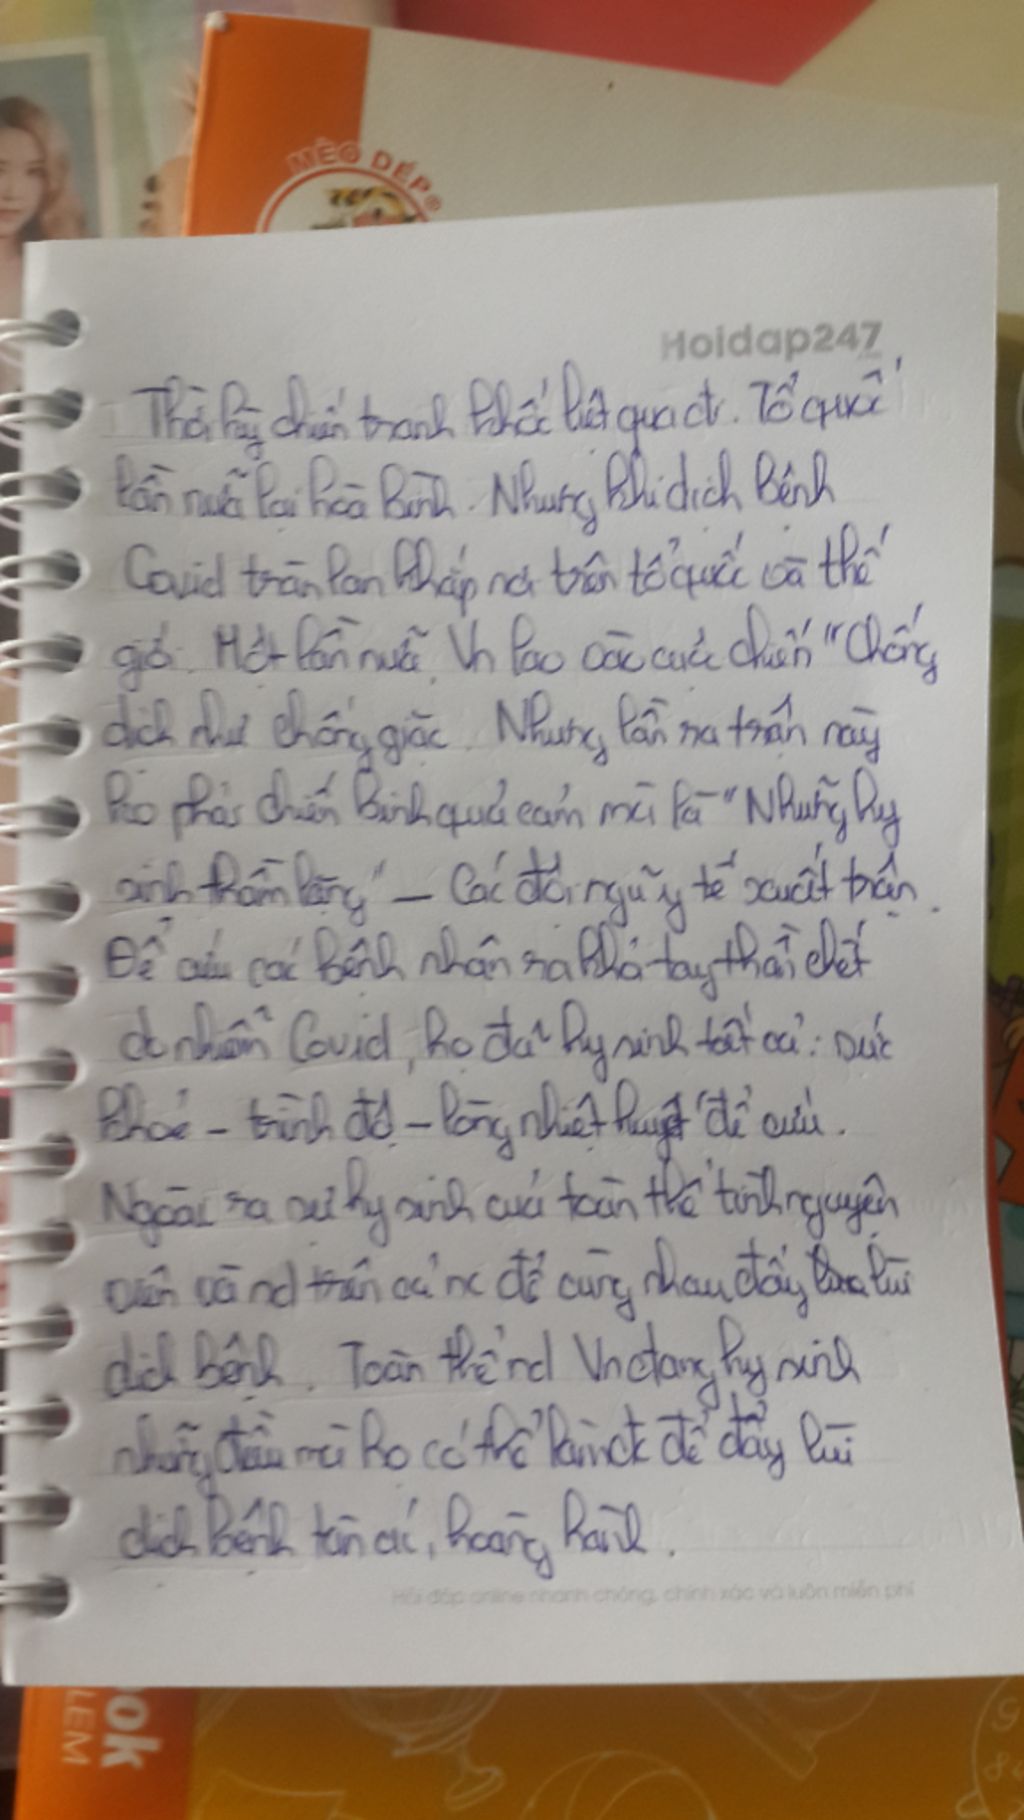 MÈO DÉP®
Hoidap247
Thời kỳ chiến tranh khốc liệt qua đi. Tổ quốc
lần nữa lại hoà bình. Nhưng khi dịch bệnh
Covid tràn lan khắp nơi trên tổ quốc và thế
giới. Một lần nữa, Vn lao vào cuộc chiến "Chống
dịch như chống giặc. Nhưng lần ra trận này
ko phải chiến binh quả cảm mà là "Những hy
sinh thầm lặng" - Các đội ngũ y tế xuất trận.
Để cứu các bệnh nhân ra khỏi tay thần chết
do nhiễm Covid, họ đã hy sinh tất cả: sức
khoẻ - trình độ - lòng nhiệt huyết để cứu.
Ngoài ra sự hy sinh của toàn thể tình nguyện
viên và nd trên cả nc để cùng nhau đẩy lùi
dịch bệnh. Toàn thể nd Vn đang hy sinh
những điều mà họ có thể làm đc để đẩy lùi
dịch bệnh tàn ác, hoành hành.
Hỏi đáp online nhanh chóng, chính xác và luôn miễn phí
ok
LEM